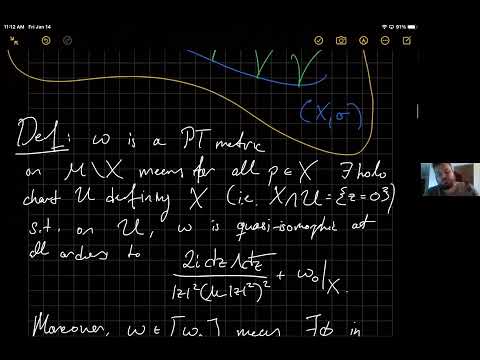 11:12 AM Fri Jan 14
91%
(X,σ)
Def: ω is a PT metric
on M\X means for all p∈X ∃ holo
chart U defining X (i.e. X∩U={z=0})
s.t. on U, ω is quasi-isomorphic at
all orders to
2i dz∧dz̄ / |z|²(ln|z|²)² + ω₀|X.
Moreover, ω∈[ω₀] means ∃φ in